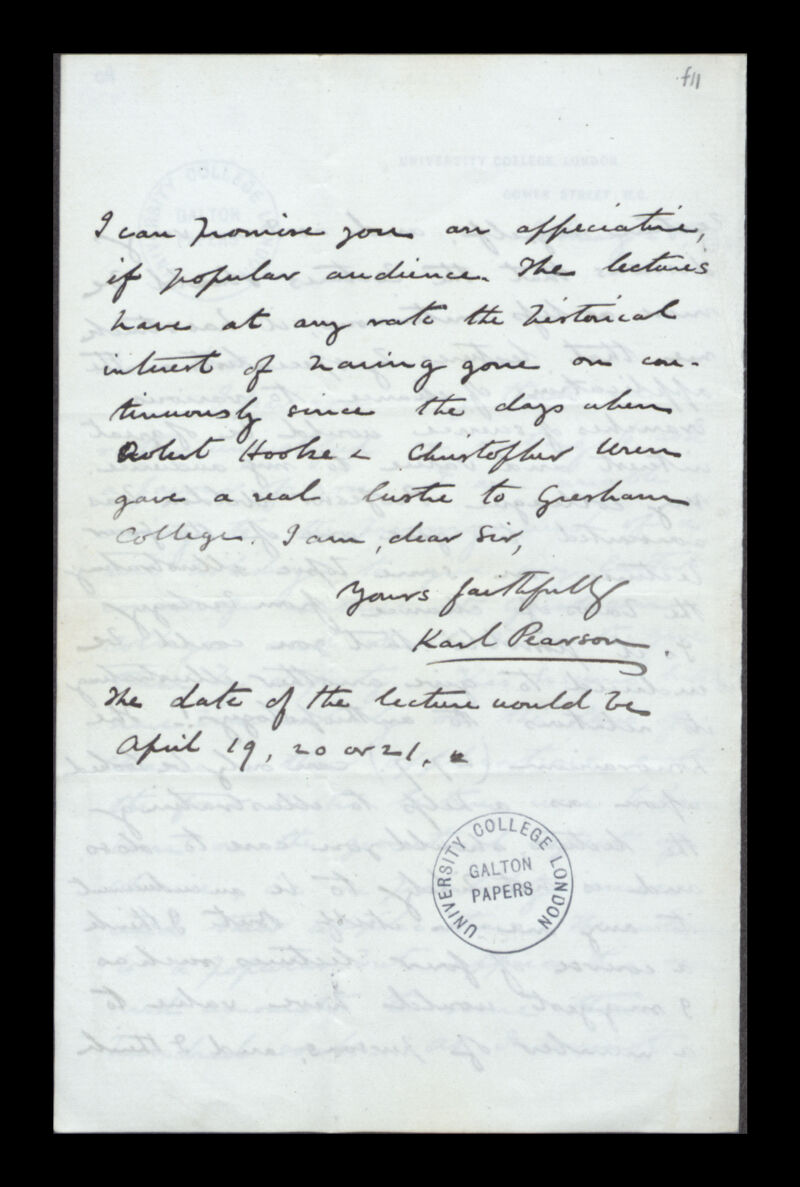 f11
I can promise you an appeciative,
if popular audience. The lectures
have at any rate the historical
interest of having gone on con-
tinuously since the days when
Robert Hooke & Christopher Wren
gave a real lustre to Gresham
College. I am, dear Sir,
Yours faithfully
Karl Pearson.
The date of the lecture would be
April 19, 20 or 21.
UNIVERSITY COLLEGE LONDON
GALTON
PAPERS